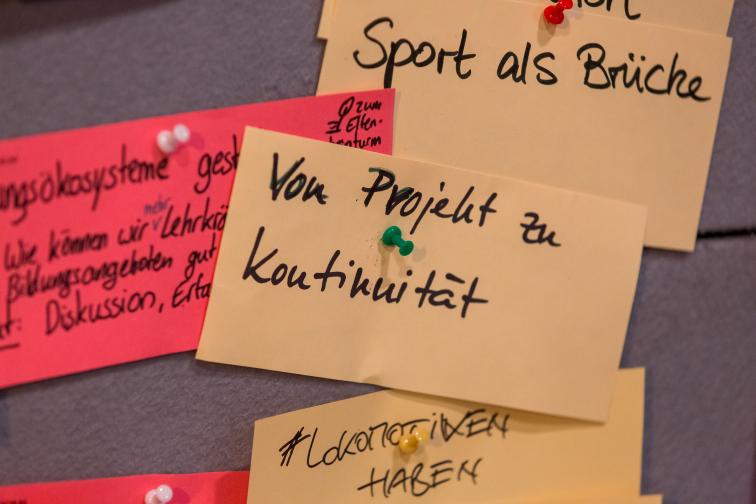 Sport als Brücke
zum
Elfen-
ungsökosysteme gest
Wie können wir mehr Lehrkrä
Bildungsangeboten gut
Diskussion, Erfa
Von Projekt zu
Kontinuität
#LOKOMOTIVEN
HABEN